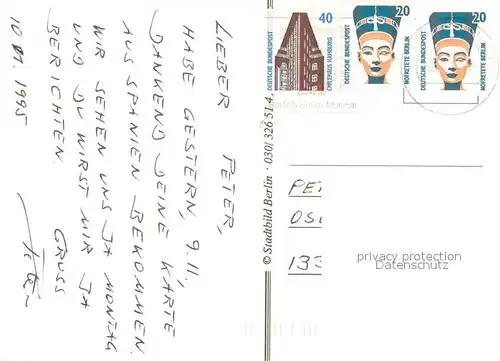 LIEBER PETER,
HABE GESTERN, 9.11,
DANKEND DEINE KARTE
AUS SPANIEN BEKOMMEN.
WIR SEHEN UNS JA MONTAG
UND DU WIRST MIR JA
BERICHTEN. GRUSS
10.11.1995
© Stadtbild Berlin · 030/ 326 51 4
DEUTSCHE BUNDESPOST
40
CHILEHAUS HAMBURG
20
DEUTSCHE BUNDESPOST
NOFRETETE BERLIN
20
DEUTSCHE BUNDESPOST
NOFRETETE BERLIN
PE
OS
13
privatsammler
Datenschutz